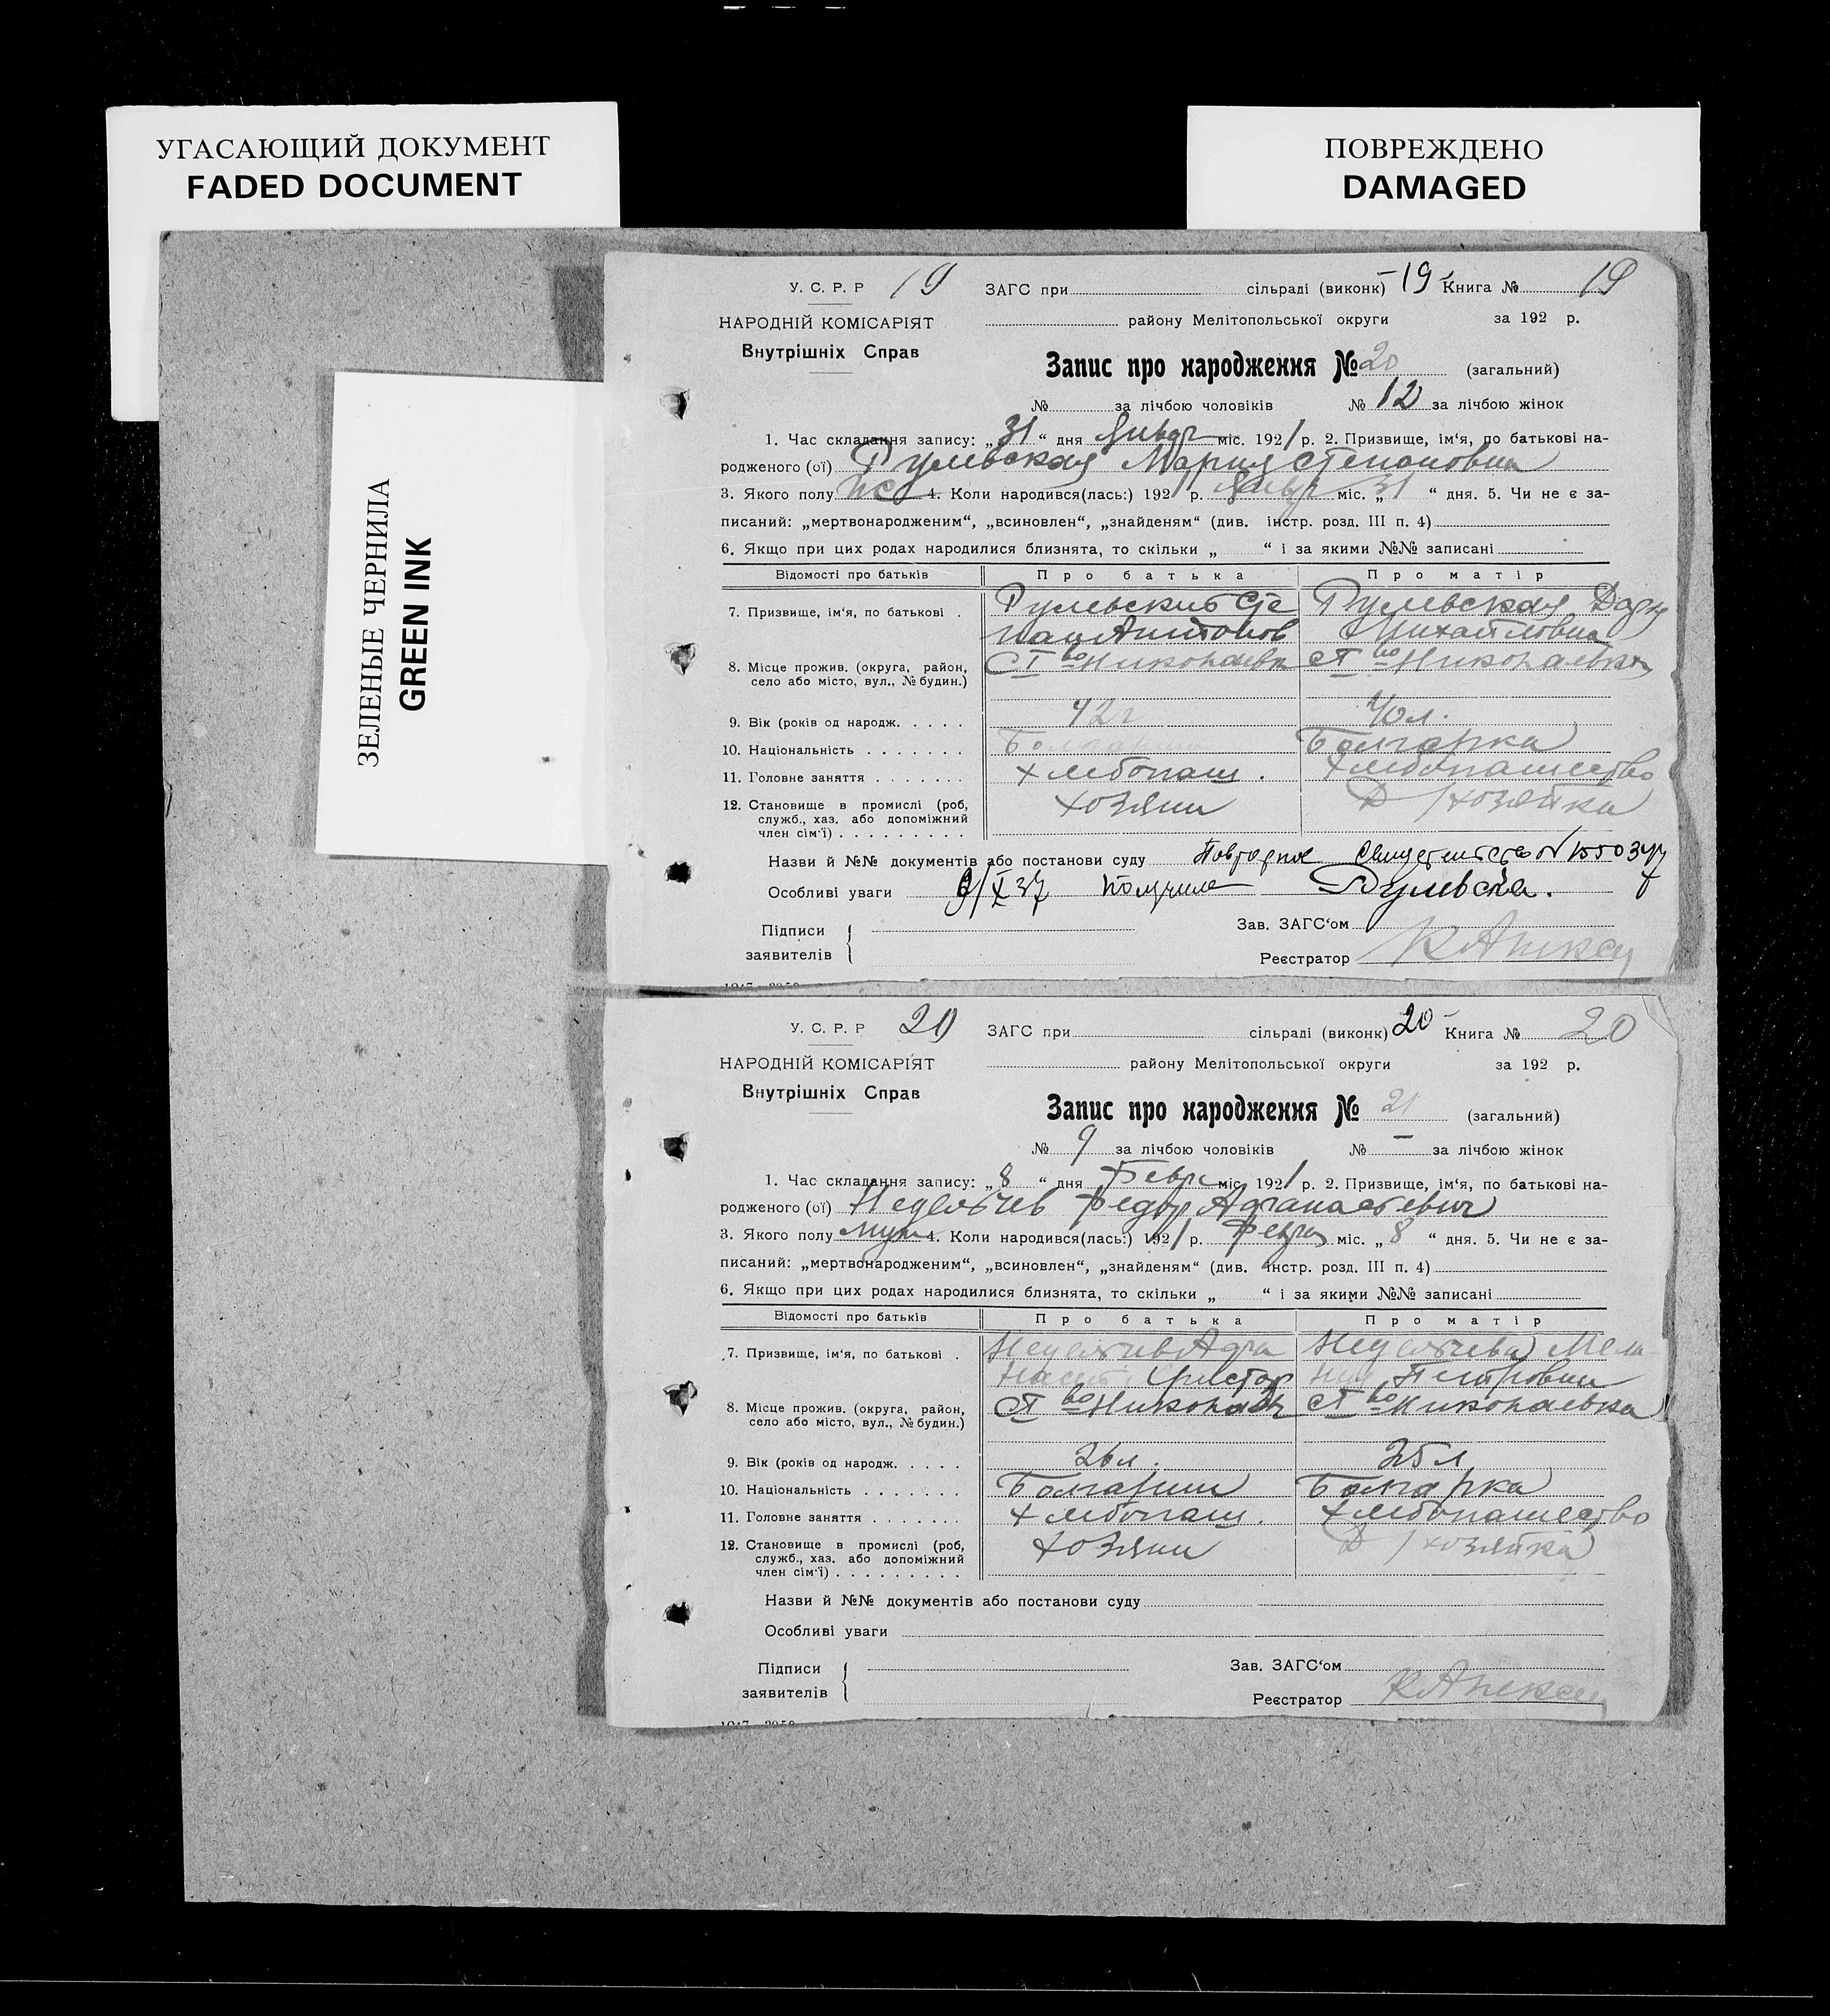 УГАСАЮЩИЙ ДОКУМЕНТ
FADED DOCUMENT
ПОВРЕЖДЕНО
DAMAGED
ЗЕЛЕНЫЕ ЧЕРНИЛА
GREEN INK
У. С. Р. Р 19 ЗАГС при сільраді (виконк) -19- Книга № 19
НАРОДНІЙ КОМІСАРІЯТ району Мелітопольської округи за 192 р.
Внутрішніх Справ
Запис про народження № 20 (загальний)
№ за лічбою чоловіків № 12 за лічбою жінок
1. Час складання запису: „31“ дня Январ міс. 1921 р. 2. Призвище, ім‘я, по батькові на-
родженого (ої) Рулевская Мария Степановна
3. Якого полу жс 4. Коли народився(лась:) 1921 р. Январ міс. „31“ дня. 5. Чи не є за-
писаний: „мертвонародженим“, „всиновлен“, „знайденям“ (див. інстр. розд. III п. 4)
6. Якщо при цих родах народилися близнята, то скільки „ “ і за якими №№ записані
Відомості про батьків Про батька Про матір
7. Призвище, ім‘я, по батькові . Рулевский Сте Рулевская Даря
пан Антонов Михайловна
8. Місце прожив. (округа, район, Ст во Николаевк Ст во Николаевка
село або місто, вул., № будин.)
9. Вік (років од народж. . . . . 42 г 40 л.
10. Національність . . . . . . . Болгарин Болгарка
11. Головне заняття . . . . . . . Хлебопаш. Хлебопашество
12. Становище в промислі (роб, хозяин Д/хозяйка
служб., хаз. або допоміжний
член сім‘ї) . . . . . . . . .
Назви й №№ документів або постанови суду Повторное Свидетельство №
Особливі уваги 9/X 37 получила Рулевска.
Підписи Зав. ЗАГС‘ом
заявителів Реєстратор
У. С. Р. Р 20 ЗАГС при сільраді (виконк) 20- Книга № 20
НАРОДНІЙ КОМІСАРІЯТ району Мелітопольської округи за 192 р.
Внутрішніх Справ
Запис про народження № 21 (загальний)
№ 9 за лічбою чоловіків № - за лічбою жінок
1. Час складання запису: „8“ дня Февр міс. 1921 р. 2. Призвище, ім‘я, по батькові на-
родженого (ої) Недялчев Федор Афанасьевич
3. Якого полу муж 4. Коли народився(лась:) 1921 р. Февра міс. „8“ дня. 5. Чи не є за-
писаний: „мертвонародженим“, „всиновлен“, „знайденям“ (див. інстр. розд. III п. 4)
6. Якщо при цих родах народилися близнята, то скільки „ “ і за якими №№ записані
Відомості про батьків Про батька Про матір
7. Призвище, ім‘я, по батькові . Недялчев Афа Недялчева Мела
Христоф ния Петровна
8. Місце прожив. (округа, район, Ст во Николаевк Ст во Николаевка
село або місто, вул., № будин.)
9. Вік (років од народж. . . . . 26 л. 25 л
10. Національність . . . . . . . Болгарин Болгарка
11. Головне заняття . . . . . . . Хлебопаш. Хлебопашество
12. Становище в промислі (роб, хозяин Д/хозяйка
служб., хаз. або допоміжний
член сім‘ї) . . . . . . . . .
Назви й №№ документів або постанови суду
Особливі уваги
Підписи Зав. ЗАГС‘ом
заявителів Реєстратор